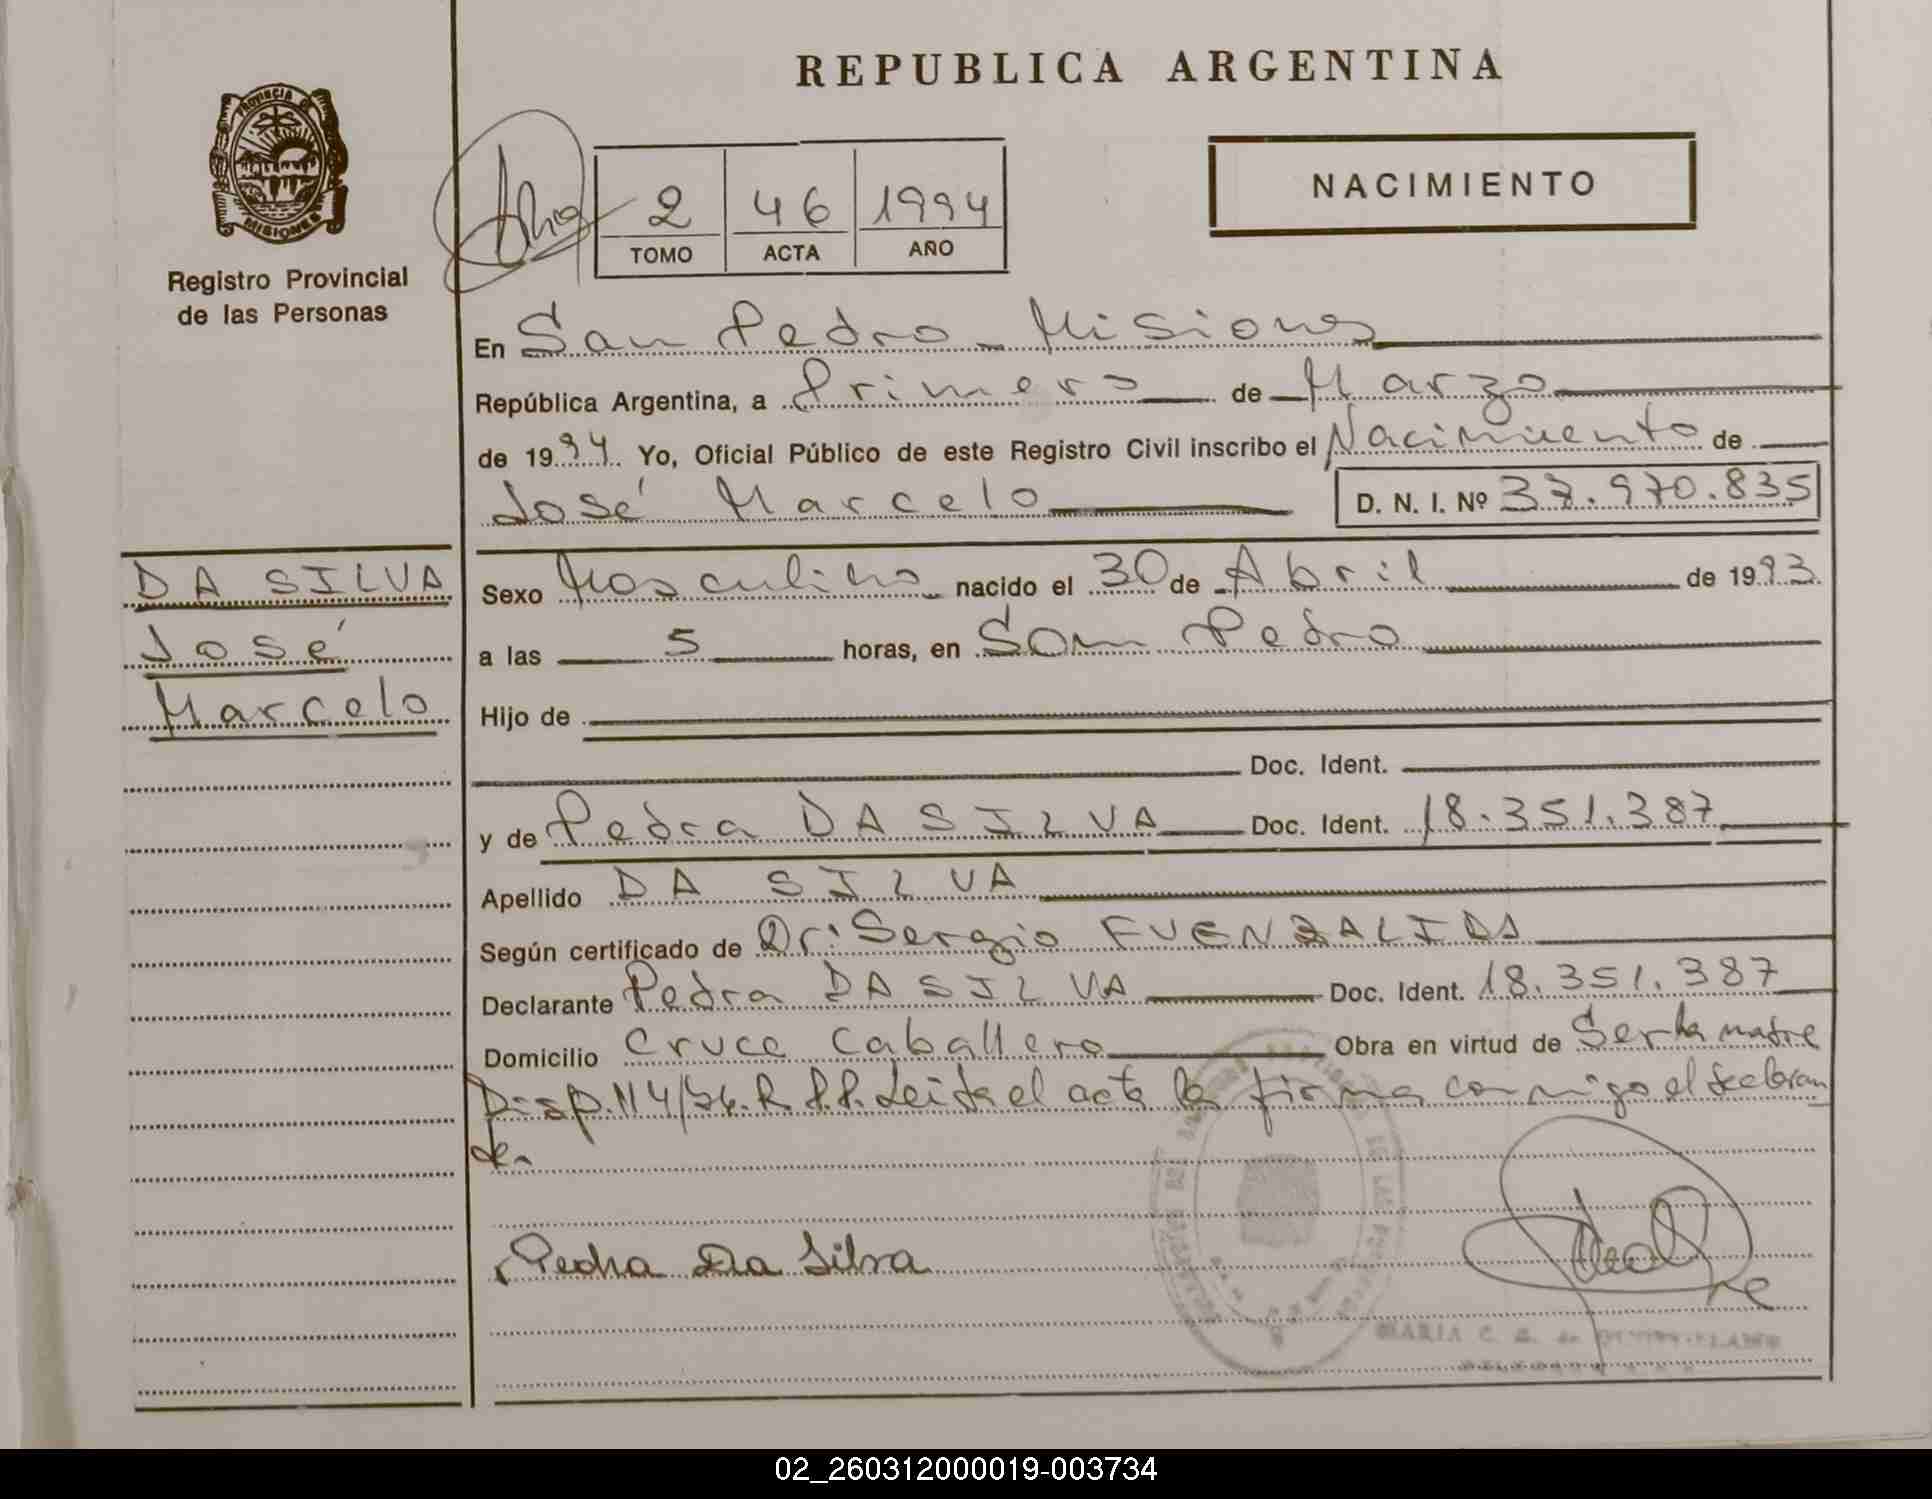 REPUBLICA ARGENTINA
PROVINCIA DE
MISIONES
Registro Provincial
de las Personas
2 46 1994
TOMO ACTA AÑO
NACIMIENTO
En San Pedro - Misiones
República Argentina, a Primero de Marzo
de 1994 Yo, Oficial Público de este Registro Civil inscribo el Nacimiento de
José Marcelo D. N. I. Nº 37.970.835
DA SILVA
José
Marcelo
Sexo Masculino nacido el 30 de Abril de 1993
a las 5 horas, en San Pedro
Hijo de
Doc. Ident.
y de Pedra DA SILVA Doc. Ident. 18.351.387
Apellido DA SILVA
Según certificado de Dr: Sergio FUENZALIDA
Declarante Pedra DA SILVA Doc. Ident. 18.351.387
Domicilio Cruce Caballero Obra en virtud de Ser la madre
Disp. 114/ R.P.P. Leida el acta la firma conmigo el declaran
te.
Pedra Da Silva
MARIA C.
02_260312000019-003734